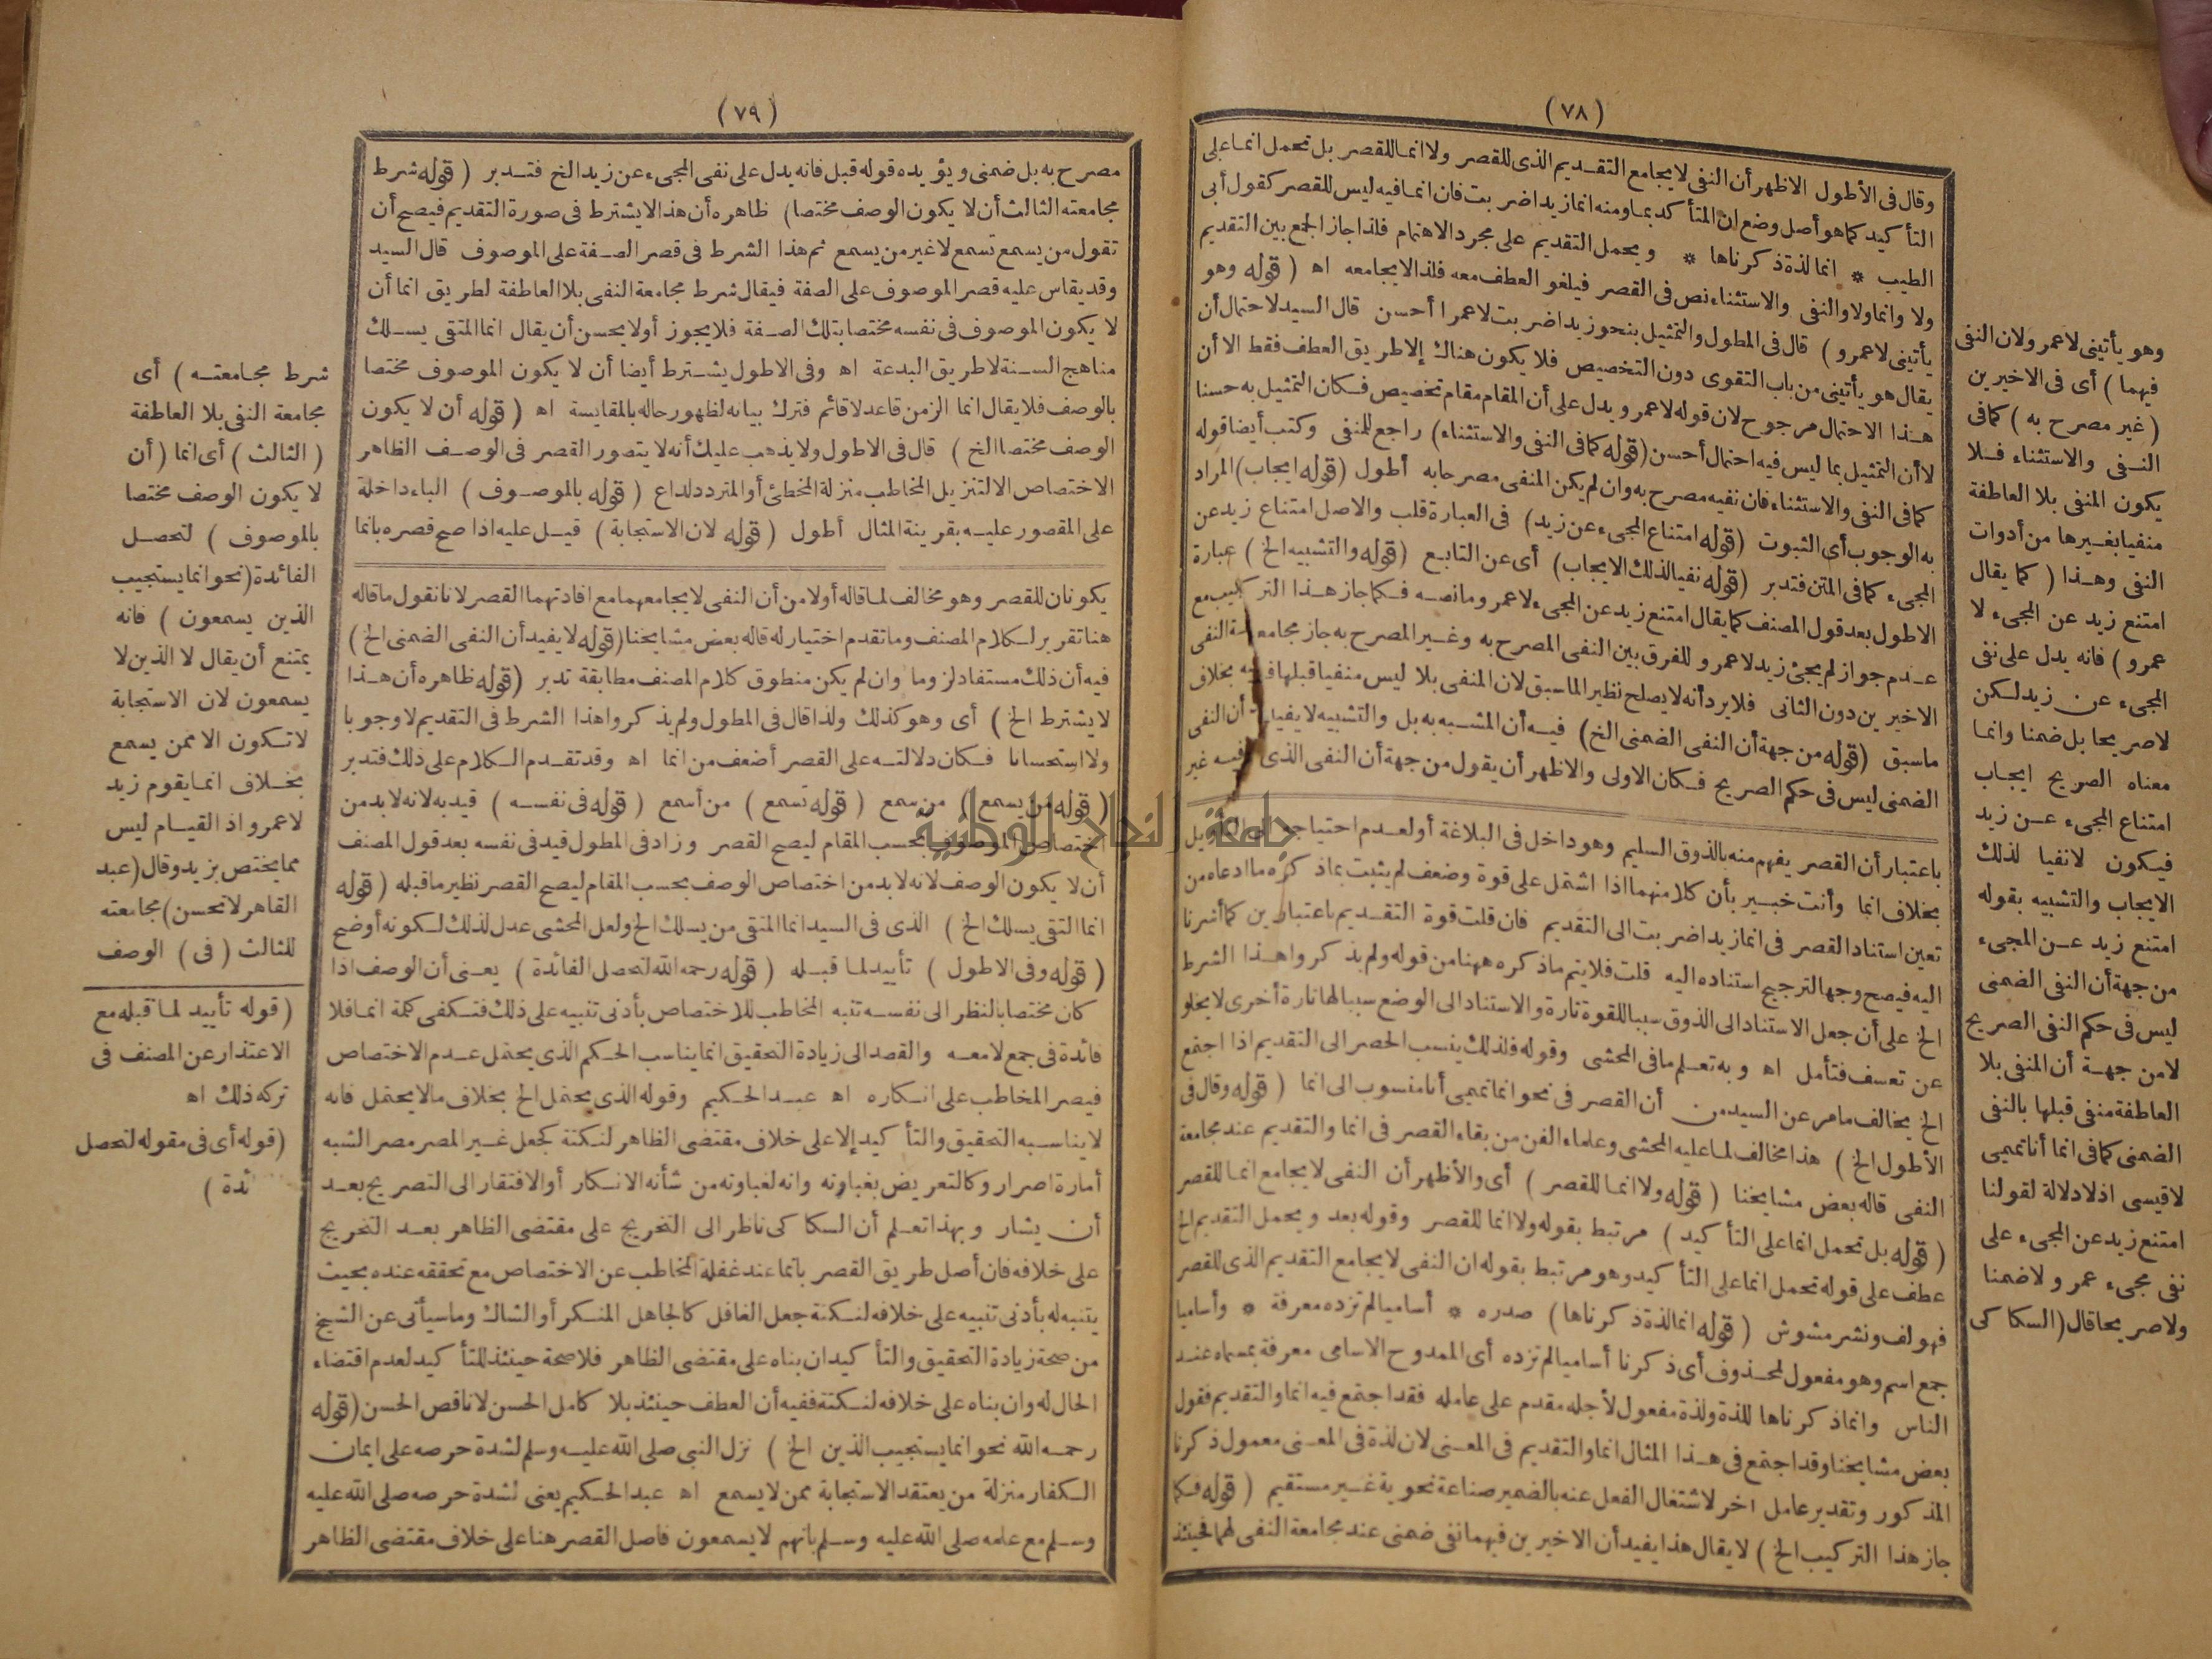 (٧٨)
وقال فى الأطول الاظهر أن النفى لا يجامع التقديم الذى للقصر ولا انما للقصر بل تحمل انما على
التأكيد كما هو أصل وضع ان المتأكد بما ومنه انما زيدا ضربت فان انما فيه ليس للقصر كقول أبى
الطيب * انما لذة ذكرناها * ويحمل التقديم على مجرد الاهتمام فلذا جاز الجمع بين التقديم
ولا وانما ولا والنفى والاستثناء نص فى القصر فيلغو العطف معه فلذا لا يجامعه اه (قوله وهو
يأتينى لا عمرو) قال فى المطول والتمثيل بنحو زيدا ضربت لا عمرا أحسن قال السيد لاحتمال أن
يقال هو يأتينى من باب التقوى دون التخصيص فلا يكون هناك إلا طريق العطف فقط الا أن
هذا الاحتمال مرجوح لان قوله لا عمرو يدل على أن المقام مقام تخصيص فكان التمثيل به حسنا
لا أن التمثيل بما ليس فيه احتمال أحسن (قوله كما فى النفى والاستثناء) راجع للمنفى وكتب أيضا قوله
كما فى النفى والاستثناء فان نفيه مصرح به وان لم يكن المنفى مصرحا به أطول (قوله ايجاب) المراد
به الوجوب أى الثبوت (قوله امتناع المجىء عن زيد) فى العبارة قلب والاصل امتناع زيد عن
المجىء كما فى المتن فتدبر (قوله نفيا لذلك الايجاب) أى عن التابع (قوله والتشبيه الخ) عبارة
الاطول بعد قول المصنف كما يقال امتنع زيد عن المجىء لا عمرو ما نصه فكما جاز هذا التركيب مع
عدم جواز لم يجئ زيد لا عمرو للفرق بين النفى المصرح به وغير المصرح به جاز مجامعة النفى
الاخيرين دون الثانى فلا يرد أنه لا يصلح نظير الما سبق لان المنفى بلا ليس منفيا قبلها فيه بخلاف
ماسبق (قوله من جهة أن النفى الضمنى الخ) فيه أن المشبه به بل والتشبيه لا يفيد أن النفى
الضمنى ليس فى حكم الصريح فكان الاولى والاظهر أن يقول من جهة أن النفى الذى فيه غير
باعتبار أن القصر يفهم منه بالذوق السليم وهو داخل فى البلاغة أو لعدم احتياجه
بخلاف انما وأنت خبير بأن كلا منهما اذا اشتمل على قوة وضعف لم يثبت بما ذكره ما ادعاه من
تعين استناد القصر فى انما زيدا ضربت الى التقديم فان قلت قوة التقديم باعتبارين كما أشرنا
اليه فيصح وجها لترجيح استناده اليه قلت فلا يتم ما ذكره ههنا من قوله ولم يذكروا هذا الشرط
الخ على أن جعل الاستناد الى الذوق سببا للقوة تارة والاستناد الى الوضع سببا لها تارة أخرى لا يخلو
عن تعسف فتأمل اه وبه تعلم ما فى المحشى وقوله فلذلك ينسب الحصر الى التقديم اذا اجتمع
الخ يخالف ما مر عن السيد من أن القصر فى نحو انما تميمى أنا منسوب الى انما (قوله وقال فى
الأطول الخ) هذا مخالف لما عليه المحشى وعلماء الفن من بقاء القصر فى انما والتقديم عند مجامعة
النفى قاله بعض مشايخنا (قوله ولا انما للقصر) أى والأظهر أن النفى لا يجامع انما للقصر
(قوله بل تحمل انما على التأكيد) مرتبط بقوله ولا انما للقصر وقوله بعد ويحمل التقديم الخ
عطف على قوله تحمل انما على التأكيد وهو مرتبط بقوله ان النفى لا يجامع التقديم الذى للقصر
فهو لف ونشر مشوش (قوله انما لذة ذكرناها) صدره * أساميا لم تزده معرفة * وأساميا
جمع اسم وهو مفعول لمحذوف أى ذكرنا أساميا لم تزده أى الممدوح الاسامى معرفة بمسماه عند
الناس وانما ذكرناها للذة ولذة مفعول لأجله مقدم على عامله فقد اجتمع فيه انما والتقديم فقول
بعض مشايخنا وقد اجتمع فى هذا المثال انما والتقديم فى المعنى لان لذة فى المعنى معمول ذكرنا
المذكور وتقدير عامل اخر لاشتغال الفعل عنه بالضمير صناعة نحوية غير مستقيم (قوله فكما
جاز هذا التركيب الخ) لا يقال هذا يفيد أن الاخيرين فيهما نفى ضمنى عند مجامعة النفى لهما فحينئذ
وهو يأتينى لا عمرو لان النفى
فيهما) أى فى الاخيرين
(غير مصرح به) كما فى
النفى والاستثناء فلا
يكون المنفى بلا العاطفة
منفيا بغيرها من أدوات
النفى وهذا (كما يقال
امتنع زيد عن المجىء لا
عمرو) فانه يدل على نفى
المجىء عن زيد لكن
لا صريحا بل ضمنا وانما
معناه الصريح ايجاب
امتناع المجىء عن زيد
فيكون لا نفيا لذلك
الايجاب والتشبيه بقوله
امتنع زيد عن المجىء
من جهة أن النفى الضمنى
ليس فى حكم النفى الصريح
لا من جهة أن المنفى بلا
العاطفة منفى قبلها بالنفى
الضمنى كما فى انما أنا تميمى
لا قيسى اذ لا دلالة لقولنا
امتنع زيد عن المجىء على
نفى مجىء عمرو لا ضمنا
ولا صريحا قال (السكاكى
(٧٩)
مصرح به بل ضمنى ويؤيده قوله قبل فانه يدل على نفى المجىء عن زيد الخ فتدبر (قوله شرط
مجامعته الثالث أن لا يكون الوصف مختصا) ظاهره أن هذا لا يشترط فى صورة التقديم فيصح أن
تقول من يسمع تسمع لا غير من يسمع ثم هذا الشرط فى قصر الصفة على الموصوف قال السيد
وقد يقاس عليه قصر الموصوف على الصفة فيقال شرط مجامعة النفى بلا العاطفة لطريق انما أن
لا يكون الموصوف فى نفسه مختصا بتلك الصفة فلا يجوز أو لا يحسن أن يقال انما المتقى يسلك
مناهج السنة لا طريق البدعة اه وفى الاطول يشترط أيضا أن لا يكون الموصوف مختصا
بالوصف فلا يقال انما الزمن قاعد لا قائم فترك بيانه لظهور حاله بالمقايسة اه (قوله أن لا يكون
الوصف مختصا الخ) قال فى الاطول ولا يذهب عليك أنه لا يتصور القصر فى الوصف الظاهر
الاختصاص الا لتنزيل المخاطب منزلة المخطئ أو المتردد لداع (قوله بالموصوف) الباء داخلة
على المقصور عليه بقرينة المثال أطول (قوله لان الاستجابة) قيل عليه اذا صح قصره بانما
يكونان للقصر وهو مخالف لما قاله أولا من أن النفى لا يجامعهما مع افادتهما القصر لانا نقول ما قاله
هنا تقرير لكلام المصنف وما تقدم اختيار له قاله بعض مشايخنا (قوله لا يفيد أن النفى الضمنى الخ)
فيه أن ذلك مستفاد لزوما وان لم يكن منطوق كلام المصنف مطابقة تدبر (قوله ظاهره أن هذا
لا يشترط الخ) أى وهو كذلك ولذا قال فى المطول ولم يذكروا هذا الشرط فى التقديم لا وجوبا
ولا استحسانا فكان دلالته على القصر أضعف من انما اه وقد تقدم الكلام على ذلك فتدبر
(قوله من يسمع) من سمع (قوله تسمع) من أسمع (قوله فى نفسه) قيد به لانه لا بد من
اختصاص الموصوف بحسب المقام ليصح القصر وزاد فى المطول قيد فى نفسه بعد قول المصنف
أن لا يكون الوصف لانه لا بد من اختصاص الوصف بحسب المقام ليصح القصر نظير ما قبله (قوله
انما التقى يسلك الخ) الذى فى السيد انما المتقى من يسلك الخ ولعل المحشى عدل لذلك لكونه أوضح
(قوله وفى الاطول) تأييد لما قبله (قوله رحمه الله لتحصل الفائدة) يعنى أن الوصف اذا
كان مختصا بالنظر الى نفسه تنبه المخاطب للاختصاص بأدنى تنبيه على ذلك فتكفى كلمة انما فلا
فائدة فى جمع لا معه والقصد الى زيادة التحقيق انما يناسب الحكم الذى يحتمل عدم الاختصاص
فيصر المخاطب على انكاره اه عبد الحكيم وقوله الذى يحتمل الخ بخلاف ما لا يحتمل فانه
لا يناسبه التحقيق والتأكيد إلا على خلاف مقتضى الظاهر لنكتة كجعل غير المصر مصر الشبه
أمارة اصرار وكالتعريض بغباوته وانه لغباوته من شأنه الانكار أو الافتقار الى التصريح بعد
أن يشار وبهذا تعلم أن السكاكى ناظر الى التخريج على مقتضى الظاهر بعد التخريج
على خلافه فان أصل طريق القصر بانما عند غفلة المخاطب عن الاختصاص مع تحققه عنده بحيث
يتنبه له بأدنى تنبيه على خلافه لنكتة جعل الغافل كالجاهل المنكر أو الشاك وما سيأتى عن الشيخ
من صحة زيادة التحقيق والتأكيد ان بناه على مقتضى الظاهر فلا صحة حينئذ للتأكيد لعدم اقتضاء
الحال له وان بناه على خلافه لنكتة ففيه أن العطف حينئذ بلا كامل الحسن لا ناقص الحسن (قوله
رحمه الله نحو انما يستجيب الذين الخ) نزل النبى صلى الله عليه وسلم لشدة حرصه على ايمان
الكفار منزلة من يعتقد الاستجابة ممن لا يسمع اه عبد الحكيم يعنى لشدة حرصه صلى الله عليه
وسلم مع علمه صلى الله عليه وسلم بانهم لا يسمعون فاصل القصر هنا على خلاف مقتضى الظاهر
شرط مجامعته) أى
مجامعة النفى بلا العاطفة
(الثالث) أى انما (أن
لا يكون الوصف مختصا
بالموصوف) لتحصل
الفائدة (نحو انما يستجيب
الذين يسمعون) فانه
يمتنع أن يقال لا الذين لا
يسمعون لان الاستجابة
لا تكون الا ممن يسمع
بخلاف انما يقوم زيد
لا عمرو اذ القيام ليس
مما يختص بزيد وقال (عبد
القاهر لا تحسن) مجامعته
للثالث (فى) الوصف
(قوله تأييد لما قبله مع
الاعتذار عن المصنف فى
تركه ذلك اه
(قوله أى فى مقوله لتحصل
ئدة)
جامعة النجاح الوطنية